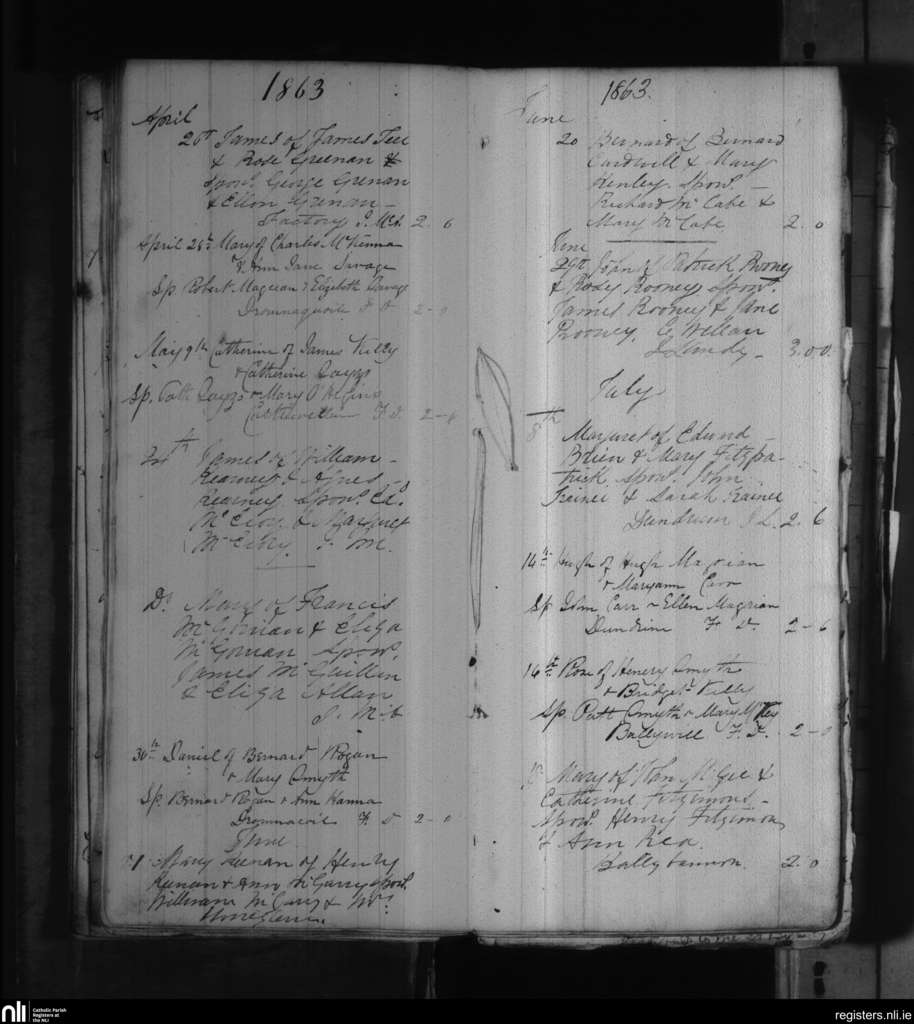 1863
April
26th James of James Tee
& Rose Greenan &
Spons. George Grenan
& Ellen Grenan -
Factory J. McA. 2 6
April 28th Mary of Charles McKenna
& Ann Jane Savage
Sp. Robert Magreean & Elizabeth Savage
F D 2-0
May 9th Catherine of James Kelly
& Catherine
Sp. Patt & Mary
Castlewellan F.D. 2-
James of William -
Kearney & Agnes -
Kearney. Spons.
McElroy & Margaret
McElroy.
Do Mary of Francis
McGornan & Eliza
McGornan Spons.
James McQuillin
& Eliza Allan
J. McA
30th Daniel of Bernard Rogan
& Mary Smyth
Sp. Bernard Rogan & Ann Hanna
F D 2-0
June
1 Mary Keenan of Henry
Keenan & Ann McGarry Spons.
William McGarry &
1863.
June
20 Bernard of Bernard
Cardwell & Mary
Henley. Spons. -
Richard McCabe &
Mary McCabe 2 0
June
29th John of Patrick Rooney
& Rosey Rooney Spons.
James Rooney & Jane
Rooney. C. Wellan
3.0.0.
July
8th Margaret of Edund -
Brien & Mary Fitzpa-
trick Spons. John
Trainer & Sarah Trainer
Dundrum 2. 6
14th Hugh of Hugh Magrian
& Maryann Carr
Sp. John Carr & Ellen Magrian
Dundrim F D. 2-6
14th Rose of Henery Smyth
& Bridget Kelly
Sp. Patt Smyth & Mary McKey
Ballywill F. D. 2-0
Mary of John McGee &
Catherine Fitzsimons -
Spons. Henry Fitzsimons
& Ann Rea.
Ballybannon. 2.0
nli
Catholic Parish
Registers at
the NLI
registers.nli.ie